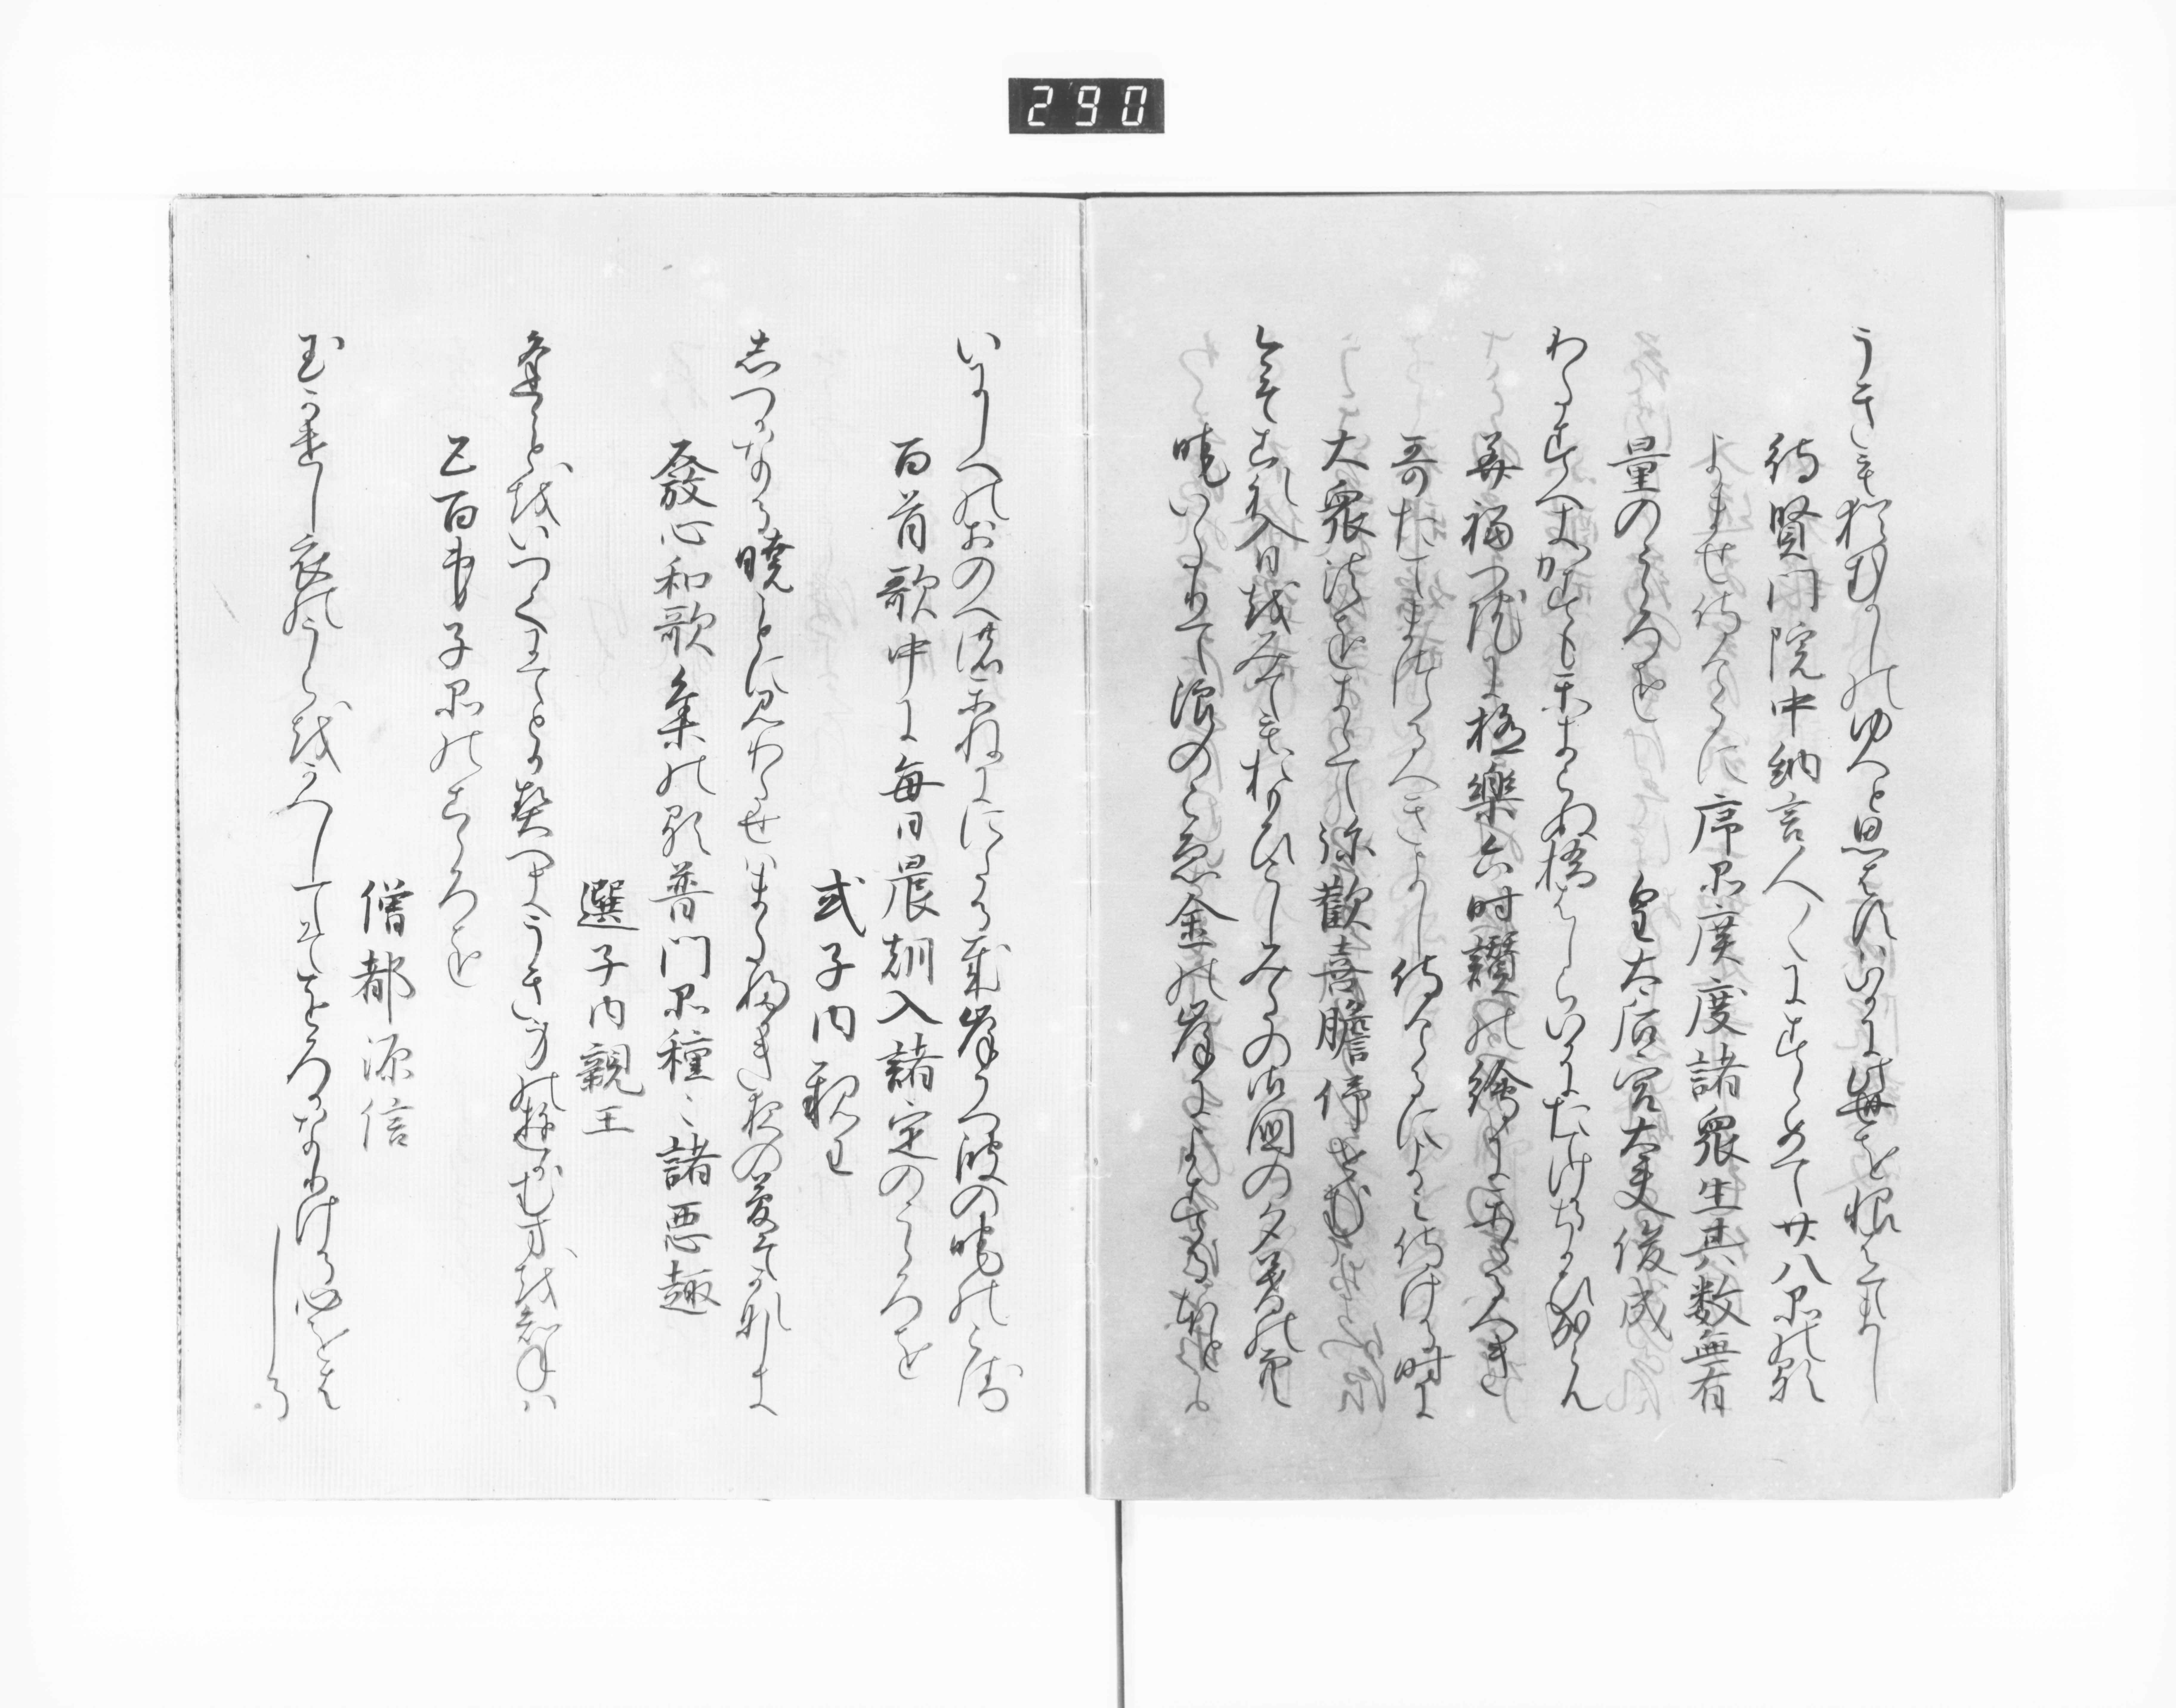 290
うきも猶むかしのゆへと思はすはいかに此世を恨はてまし
待賢門院中納言人〱にすゝめて廿八品の哥
よませ侍けるに序品廣度諸衆生其数無有
量のこゝろを 皇太后宮大夫俊成
わたすへきかすもかきらぬ橋はしらいかにたてけるちかひなるらん
美福門院に極樂六時讃の繪にかゝるへき
哥たてまつるへきよし侍けるによみ侍ける時に
大衆法をきゝて弥歓喜瞻仰せむ
今そこれ入日をみてもおもひこしみたの御國の夕暮の空
暁いたりて浪のこゑ金の岸によするほと
いにしへのおのへの鐘ににたるかな岸うつ波の暁のこゑ
百首歌中に毎日晨朝入諸定のこゝろを
式子内親王
しつかなる暁ことに見わたせはまたふかき夜の夢そかなしき
發心和歌集の哥普門品種ミ諸悪趣
選子内親王
逢ことをいつくにてとか契へきうき身のゆかむかたをしらねは
五百弟子品のこゝろを
僧都源信
玉かけし衣のうらをかへしてそをろかなりける心をはしる